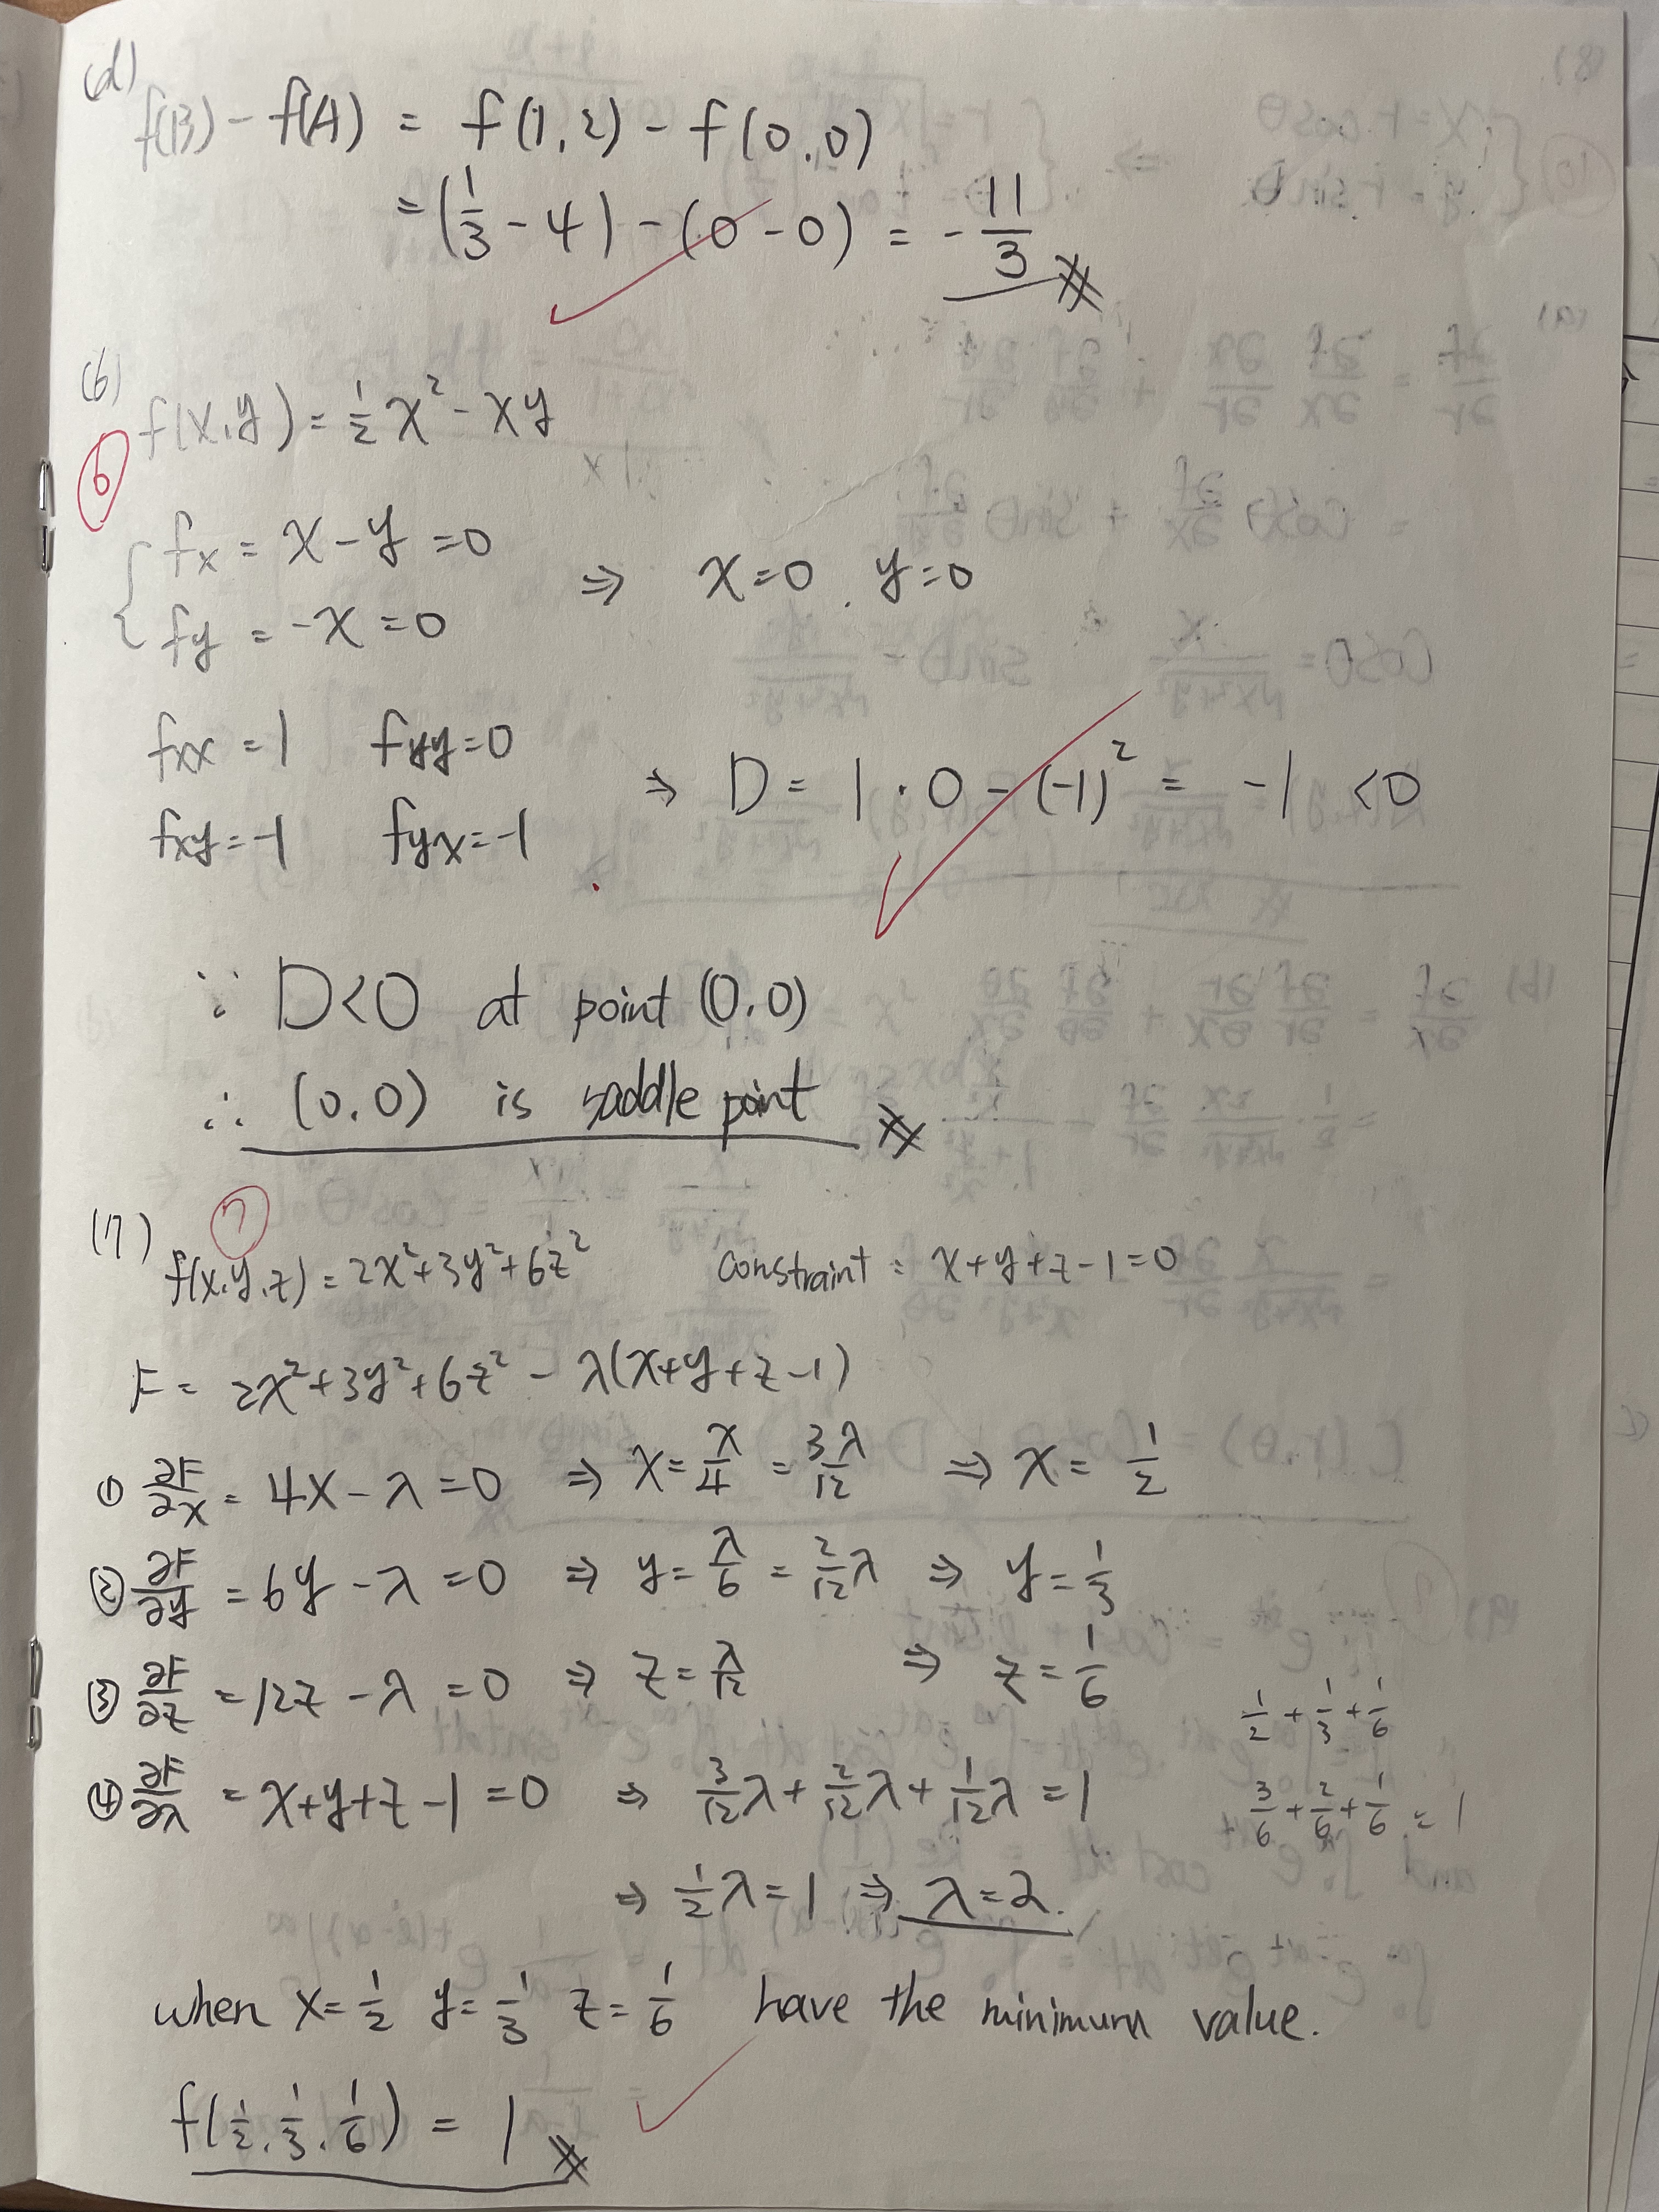 (d)
f(B) - f(A) = f(1,2) - f(0,0)
= (1/3 - 4) - (0 - 0) = - 11/3
(6)
6
f(x,y) = 1/2 x² - xy
{ fx = x - y = 0
fy = -x = 0 ⇒ x=0, y=0
fxx = 1 fyy = 0
fxy = -1 fyx = -1 ⇒ D = 1·0 - (-1)² = -1 <0
∵ D<0 at point (0,0)
∴ (0,0) is saddle point
(7)
7
f(x,y,z) = 2x²+3y²+6z² constraint : x+y+z-1=0
F = 2x²+3y²+6z² - λ(x+y+z-1)
① ∂F/∂x = 4x - λ = 0 ⇒ x = λ/4 = 3λ/12 ⇒ x = 1/2
② ∂F/∂y = 6y - λ = 0 ⇒ y = λ/6 = 2/12 λ ⇒ y = 1/3
③ ∂F/∂z = 12z - λ = 0 ⇒ z = λ/12 ⇒ z = 1/6
1/2 + 1/3 + 1/6
④ ∂F/∂λ = x+y+z-1 = 0 ⇒ 3/12 λ + 2/12 λ + 1/12 λ = 1
3/6 + 2/6 + 1/6 = 1
⇒ 1/2 λ = 1 ⇒ λ = 2.
when x = 1/2 y = 1/3 z = 1/6 have the minimum value.
f(1/2, 1/3, 1/6) = 1